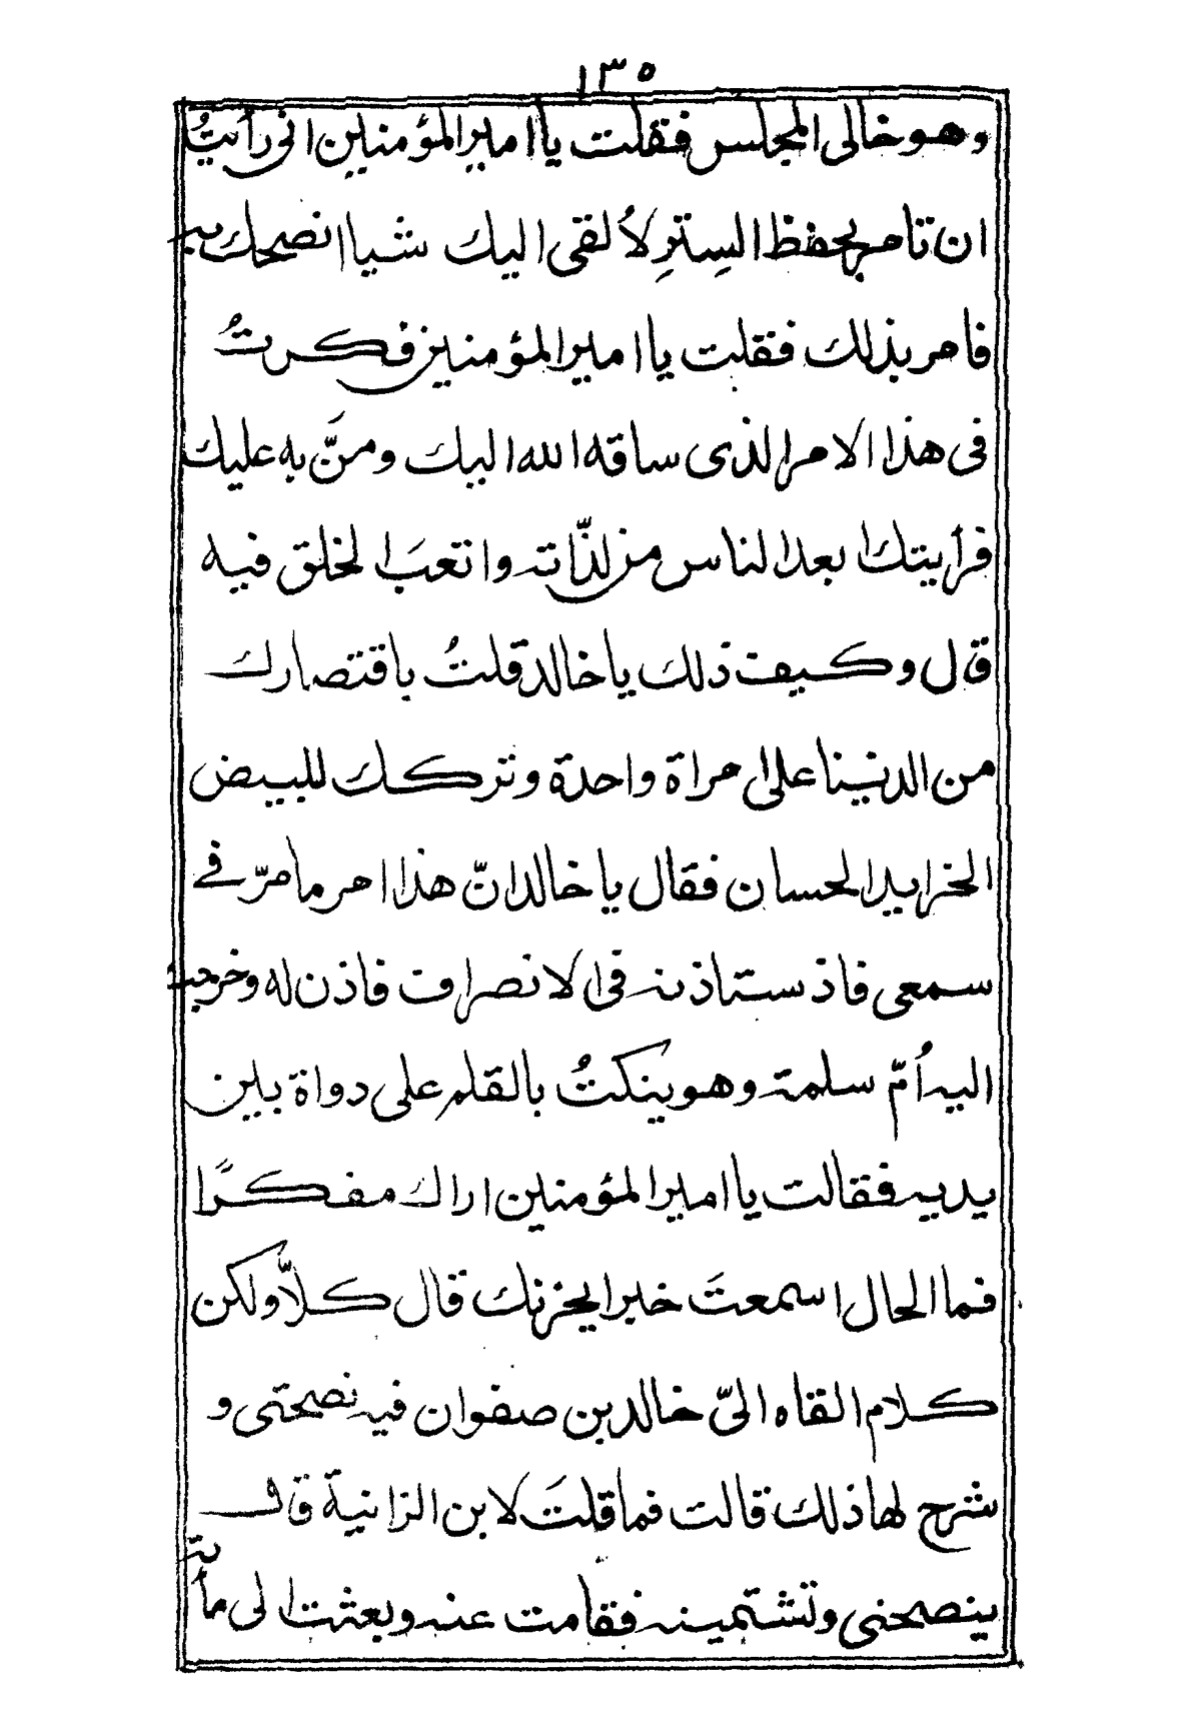 ١٣٥
وهو خالى المجلس فقلت يا امير المؤمنين انى رأيتُ
ان تامر بحفظ السِترِ لاُلقى اليك شيا انصحك به
فامر بذلك فقلت يا امير المؤمنين فكرتُ
فى هذا الامر الذى ساقه الله اليك ومنَّ به عليك
فرأيتك ابعد الناس من لذّاته واتعبَ الخلق فيه
قال وكيف ذلك يا خالد قلتُ باقتصارك
من الدنيا على امراة واحدة وتركك للبيض
الخرايد الحسان فقال يا خالد انّ هذا امر ما مرّ فى
سمعى فاذ ستاذنه فى الانصراف فاذن له وخرجت
اليه اُمّ سلمة وهو ينكتُ بالقلم على دواة بين
يديه فقالت يا امير المؤمنين اراك مفكرًا
فما الحال اسمعتَ خبرا يحزنك قال كلاّ ولكن
كلام القاه الىّ خالد بن صفوان فيه نصحتى و
شرح لها ذلك قالت فما قلتَ لابن الزانية قال
ينصحنى وتشتمينه فقامت عنه وبعثت الى مأته